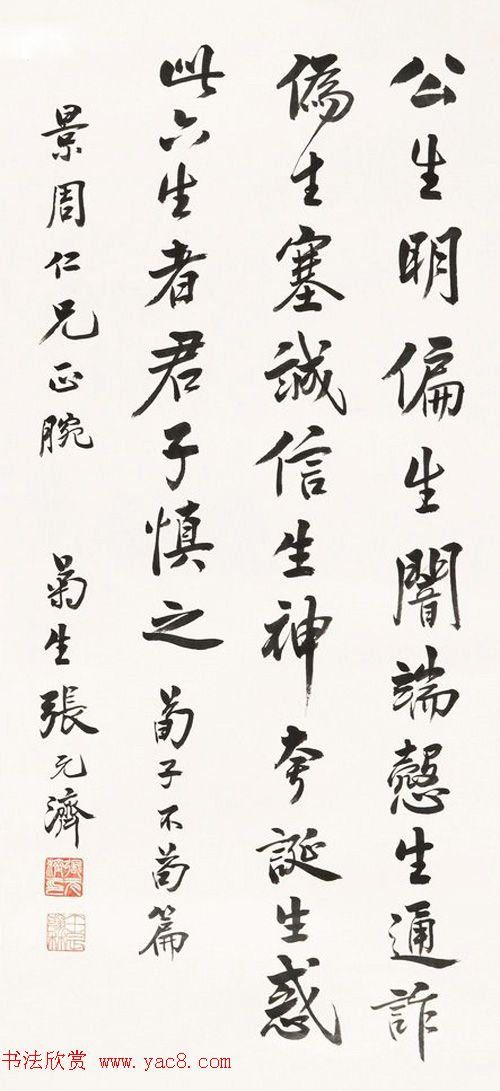 公生明偏生闇端慤生通詐
偽生塞誠信生神夸誕生惑
此六生者君子慎之 荀子不苟篇
景周仁兄正腕 菊生張元濟
书法欣赏 www.yac8.com